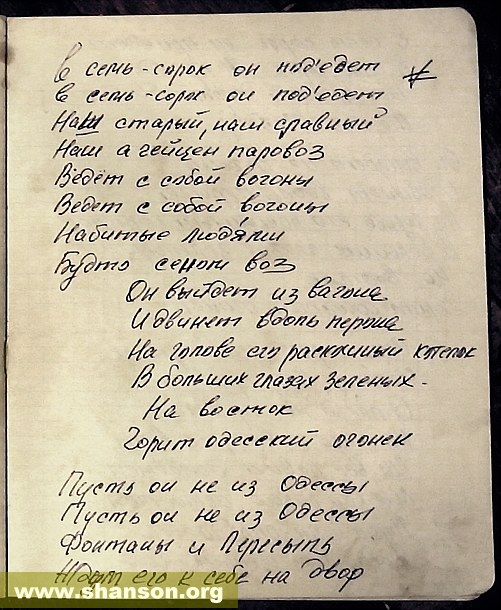 в семь-сорок он под'едет
в семь-сорок он под'едет
Наш старый, наш славный
Наш агейцен паровоз
Ведёт с собой вогоны
Ведет с собой вогоны
Набитые людями
Будто сеном воз
Он выйдет из вагона
И двинет вдоль перона
На голове его роскошный котелок
В больших глазах зеленых-
На восток
Горит одесский огонек
Пусть он не из Одессы
Пусть он не из Одессы
Фонтаны и Пересыпь
Ждут его к себе на двор
www.shanson.org